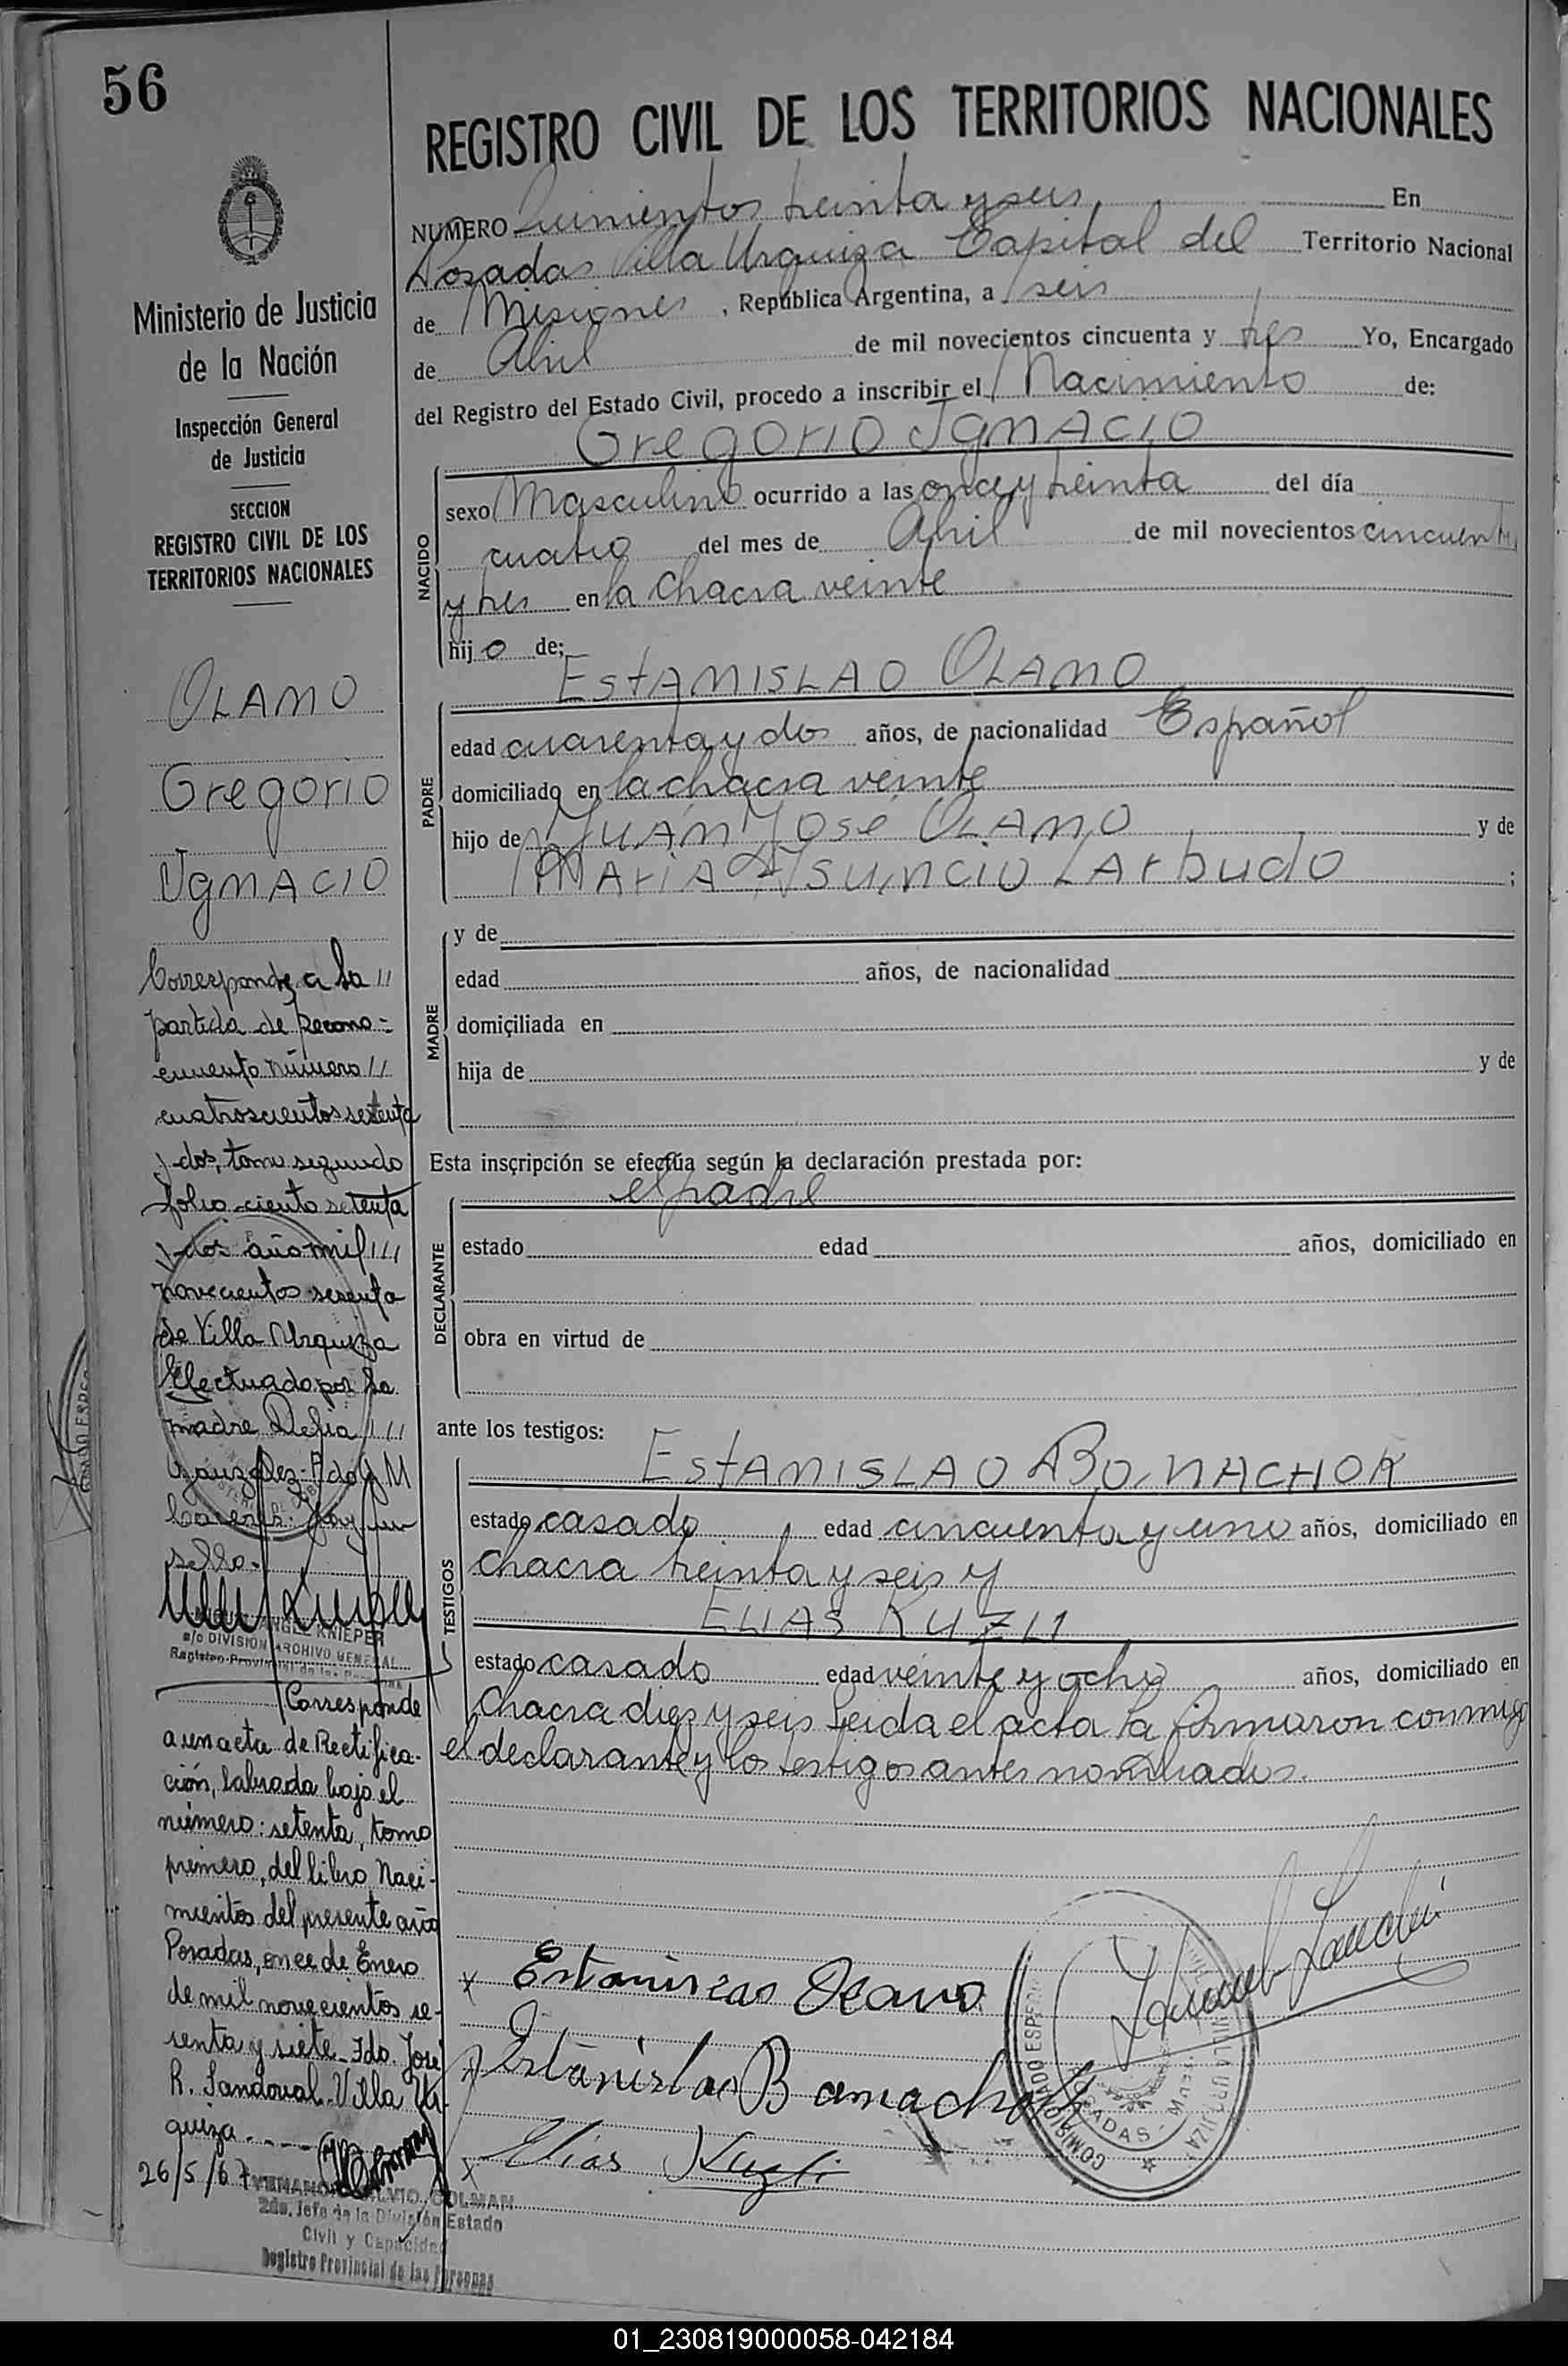 56
REGISTRO CIVIL DE LOS TERRITORIOS NACIONALES
NUMERO Quinientos treinta y seis En
Posadas Villa Urquiza Capital del Territorio Nacional
de Misiones, República Argentina, a seis
de Abril de mil novecientos cincuenta y tres Yo, Encargado
del Registro del Estado Civil, procedo a inscribir el Nacimiento de:
Gregorio Ignacio
NACIDO
sexo Masculino ocurrido a las once y treinta del día
cuatro del mes de Abril de mil novecientos cincuenta
y tres en la chacra veinte
hijo de;
Estanislao Olano
PADRE
edad cuarenta y dos años, de nacionalidad Español
domiciliado en la chacra veinte
hijo de Juan José Olano y de
Maria Asuncio Larbudo ;
MADRE
y de
edad años, de nacionalidad
domiciliada en
hija de y de
Esta inscripción se efectúa según la declaración prestada por:
el padre
DECLARANTE
estado edad años, domiciliado en
obra en virtud de
ante los testigos:
Estanislao Bonachor
TESTIGOS
estado casado edad cincuenta y uno años, domiciliado en
chacra treinta y seis y
Elias Kuzli
estado casado edad veinte y ocho años, domiciliado en
chacra diez y seis Leida el acta la firmaron conmigo
el declarante y los testigos antes nombrados.
Estanislao Olano
Estanislao Bonachor
Elias Kuzli
Ministerio de Justicia
de la Nación
Inspección General
de Justicia
SECCION
REGISTRO CIVIL DE LOS
TERRITORIOS NACIONALES
OLANO
Gregorio
Ignacio
Corresponde a la //
partida de recono=
cimiento número //
cuatroscientos setenta
y dos, tomo segundo
folio ciento setenta
y dos año mil ///
novecientos sesenta
de Villa Urquiza
Efectuado por la
madre Delia ///
Gonzalez- Fdo M
Caceres. Hay un
sello.-
ANGEL KNIEPER
a/c DIVISION ARCHIVO GENERAL
Registro Provincial de las
Corresponde
a un acta de Rectifica-
ción, labrada bajo el
número: setenta, tomo
primero, del libro Naci-
mientos del presente año
Posadas, once de Enero
de mil novecientos se-
senta y siete. Fdo. José
R. Sandoval. Villa Ur-
quiza.
26/5/67
COLMAN
2do. Jefe de la División Estado
Civil y Capacidad
Registro Provincial de las Personas
01_230819000058-042184